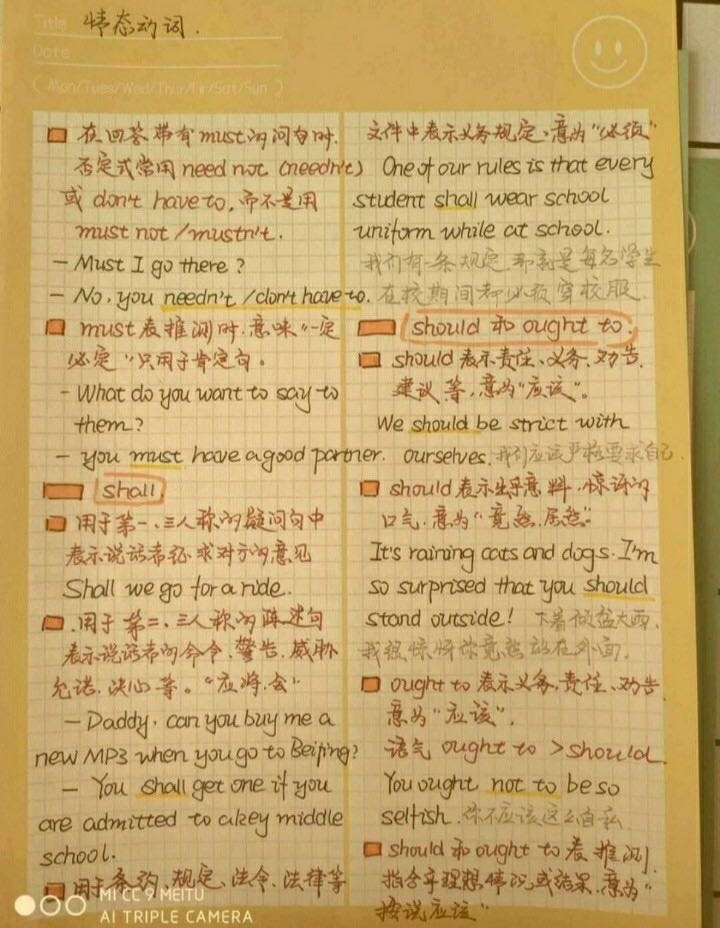 Title 情态动词.
Date
( Mon/Tues/Wed/Thur/Fri/Sat/Sun )
在回答带有must的问句时,
否定式常用need not (needn't)
或 don't have to, 而不是用
must not /mustn't.
- Must I go there?
- No, you needn't /don't have to.
must表推测时,意味“一定
必定”只用于肯定句。
- What do you want to say to
them?
- you must have a good partner.
shall
用于第一、三人称的疑问句中
表示说话者征求对方的意见
Shall we go for a ride.
用于第二、三人称的陈述句
表示说话者的命令、警告、威胁
允诺、决心等。“应将、会”
- Daddy, can you buy me a
new MP3 when you go to Beijing?
- You shall get one if you
are admitted to a key middle
school.
用于条约、规定、法令、法律等
文件中表示义务规定,意为“必须”
One of our rules is that every
student shall wear school
uniform while at school.
我们有一条规定,那就是每名学生
在校期间都必须穿校服.
should 和 ought to.
should 表示责任、义务、劝告、
建议等,意为“应该”。
We should be strict with
ourselves. 我们应该严格要求自己.
should 表示出乎意料、惊讶的
口气,意为“竟然、居然”
It's raining cats and dogs. I'm
so surprised that you should
stand outside! 下着倾盆大雨,
我很惊讶你竟然站在外面.
ought to 表示义务、责任、劝告
意为“应该”,
语气 ought to >should.
You ought not to be so
selfish. 你不应该这么自私
should 和 ought to 表推测,
指合乎理想情况或结果,意为“
按说应该”
MI CC 9 MEITU
AI TRIPLE CAMERA